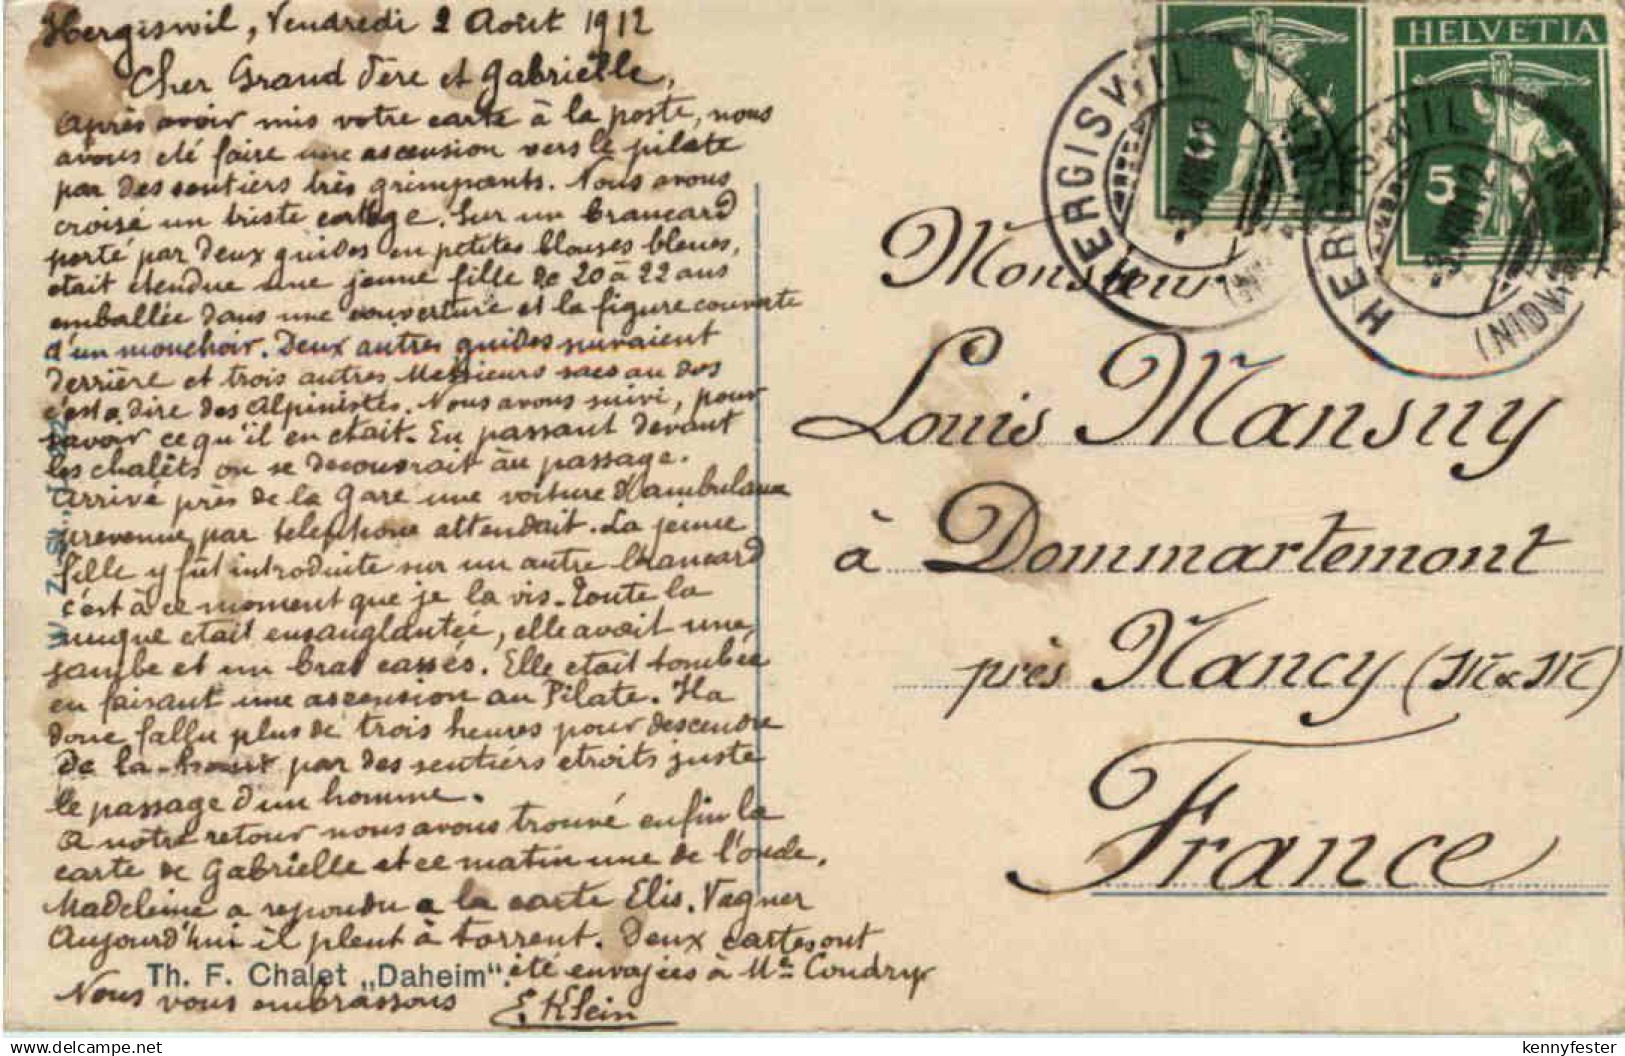 Hergiswil, Vendredi 2 Août 1912
Cher Grand Père et Gabrielle,
Après avoir mis votre carte à la poste, nous
avons été faire une ascension vers le pilate
par des sentiers très grimpants. Nous avons
croisé un triste cortège. Sur un brancard
porté par deux guides en petites blouses bleues,
était étendue une jeune fille de 20 à 22 ans
emballée dans une couverture et la figure couverte
d'un mouchoir. Deux autres guides suivaient
derrière et trois autres Messieurs sacs au dos
c'est a dire des Alpinistes. Nous avons suivi, pour
savoir ce qu'il en était. En passant devant
les chalêts on se découvrait au passage.
Arrivé près de la Gare une voiture d'ambulance
prevenue par telephone attendait. La jeune
fille y fût introduite sur un autre brancard
c'est à ce moment que je la vis. Toute la
nuque etait ensanglantée, elle avait une
jambe et un bras cassés. Elle etait tombée
en faisant une ascension au Pilate. Il a
donc fallu plus de trois heures pour descendre
de la-haut par des sentiers etroits juste
le passage d'un homme.
A notre retour nous avons trouvé enfin la
carte de Gabrielle et ce matin une de l'oncle.
Madeleine a repondu a la carte Elis. Vagner
Aujourd'hui il pleut à torrent. Deux cartes ont
été envoyées à Me Coudry
Nous vous embrassons E. Klein
Th. F. Chalet „Daheim".
W. Z. Sv.
HELVETIA
5
HERGISWIL
(NIDWALDEN)
-3.VIII.12
HERGISWIL
(NIDWALDEN)
-3.VIII.12
Monsieur
Louis Mansuy
à Dommartemont
près Nancy (M & M)
France
delcampe.net
kennyfester